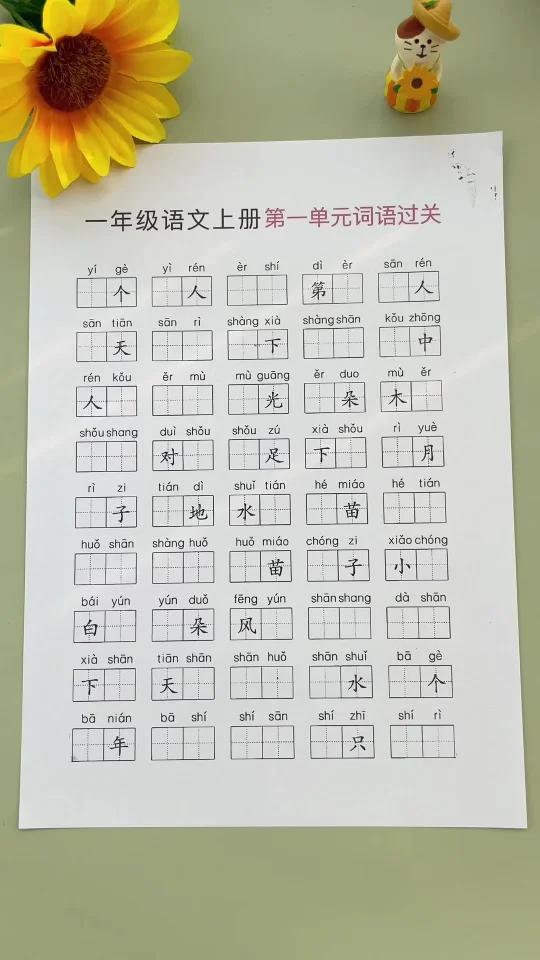 一年级语文上册第一单元词语过关
yí gè yì rén èr shí dì èr sān rén
个 人 第 人
sān tiān sān rì shàng xià shàng shān kǒu zhōng
天 下 中
rén kǒu ěr mù mù guāng ěr duo mù ěr
人 光 朵 木
shǒu shang duì shǒu shǒu zú xià shǒu rì yuè
对 足 下 月
rì zi tián dì shuǐ tián hé miáo hé tián
子 地 水 苗
huǒ shān shàng huǒ huǒ miáo chóng zi xiǎo chóng
苗 子 小
bái yún yún duǒ fēng yún shān shang dà shān
白 朵 风
xià shān tiān shān shān huǒ shān shuǐ bā gè
下 天 水 个
bā nián bā shí shí sān shí zhī shí rì
年 只